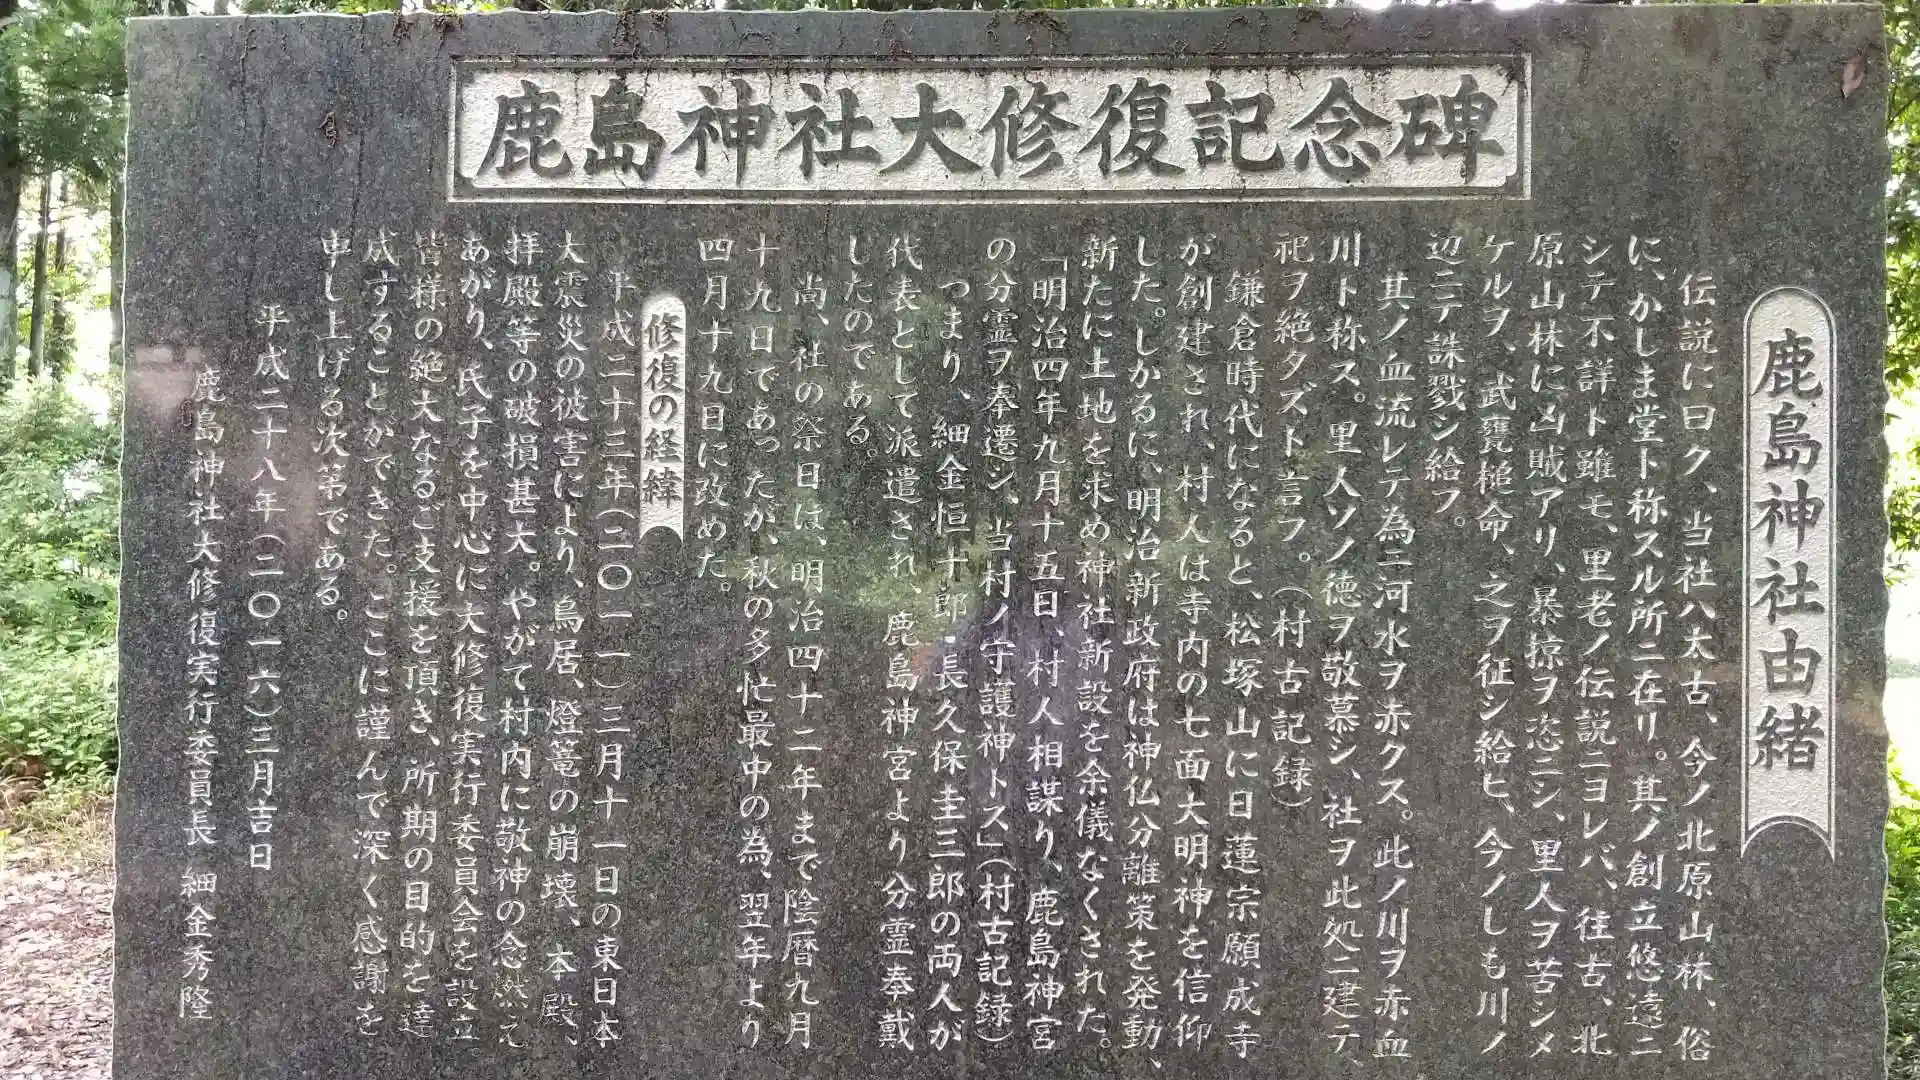 鹿島神社大修復記念碑
鹿島神社由緒
伝説に曰ク、当社ハ太古、今ノ北原山林、俗
に、かしま堂ト称スル所ニ在リ。其ノ創立悠遠ニ
シテ不詳ト雖モ、里老ノ伝説ニヨレバ、往古、北
原山林に凶賊アリ、暴掠ヲ恣ニシ、里人ヲ苦シメ
ケルヲ、武甕槌命、之ヲ征シ給ヒ、今ノしも川ノ
辺ニテ誅戮シ給フ。
其ノ血流レテ為ニ河水ヲ赤クス。此ノ川ヲ赤血
川ト称ス。里人ソノ徳ヲ敬慕シ、社ヲ此処ニ建テ、
祀ヲ絶タズト言フ。（村古記録）
鎌倉時代になると、松塚山に日蓮宗願成寺
が創建され、村人は寺内の七面大明神を信仰
した。しかるに、明治新政府は神仏分離策を発動、
新たに土地を求め神社新設を余儀なくされた。
「明治四年九月十五日、村人相謀り、鹿島神宮
の分霊ヲ奉遷シ、当村ノ守護神トス」（村古記録）
つまり、細金恒十郎・長久保圭三郎の両人が
代表として派遣され、鹿島神宮より分霊奉戴
したのである。
尚、社の祭日は、明治四十二年まで陰暦九月
十九日であったが、秋の多忙最中の為、翌年より
四月十九日に改めた。
修復の経緯
平成二十三年（二〇一一）三月十一日の東日本
大震災の被害により、鳥居、燈篭の崩壊、本殿、
拝殿等の破損甚大。やがて村内に敬神の念燃え
あがり、氏子を中心に大修復実行委員会を設立。
皆様の絶大なるご支援を頂き、所期の目的を達
成することができた。ここに謹んで深く感謝を
申し上げる次第である。
平成二十八年（二〇一六）三月吉日
鹿島神社大修復実行委員長 細金秀隆